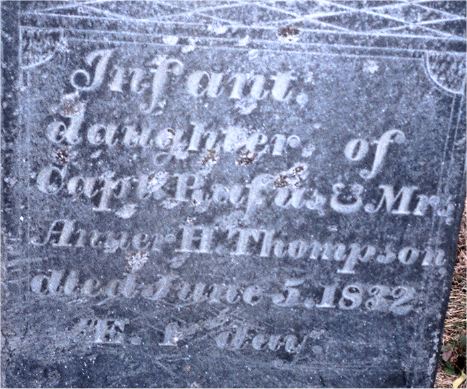 Infant,
daughter of
Capt. Rufus & Mrs.
Anner H. Thompson
died June 5, 1832.
Æ. 1 day.